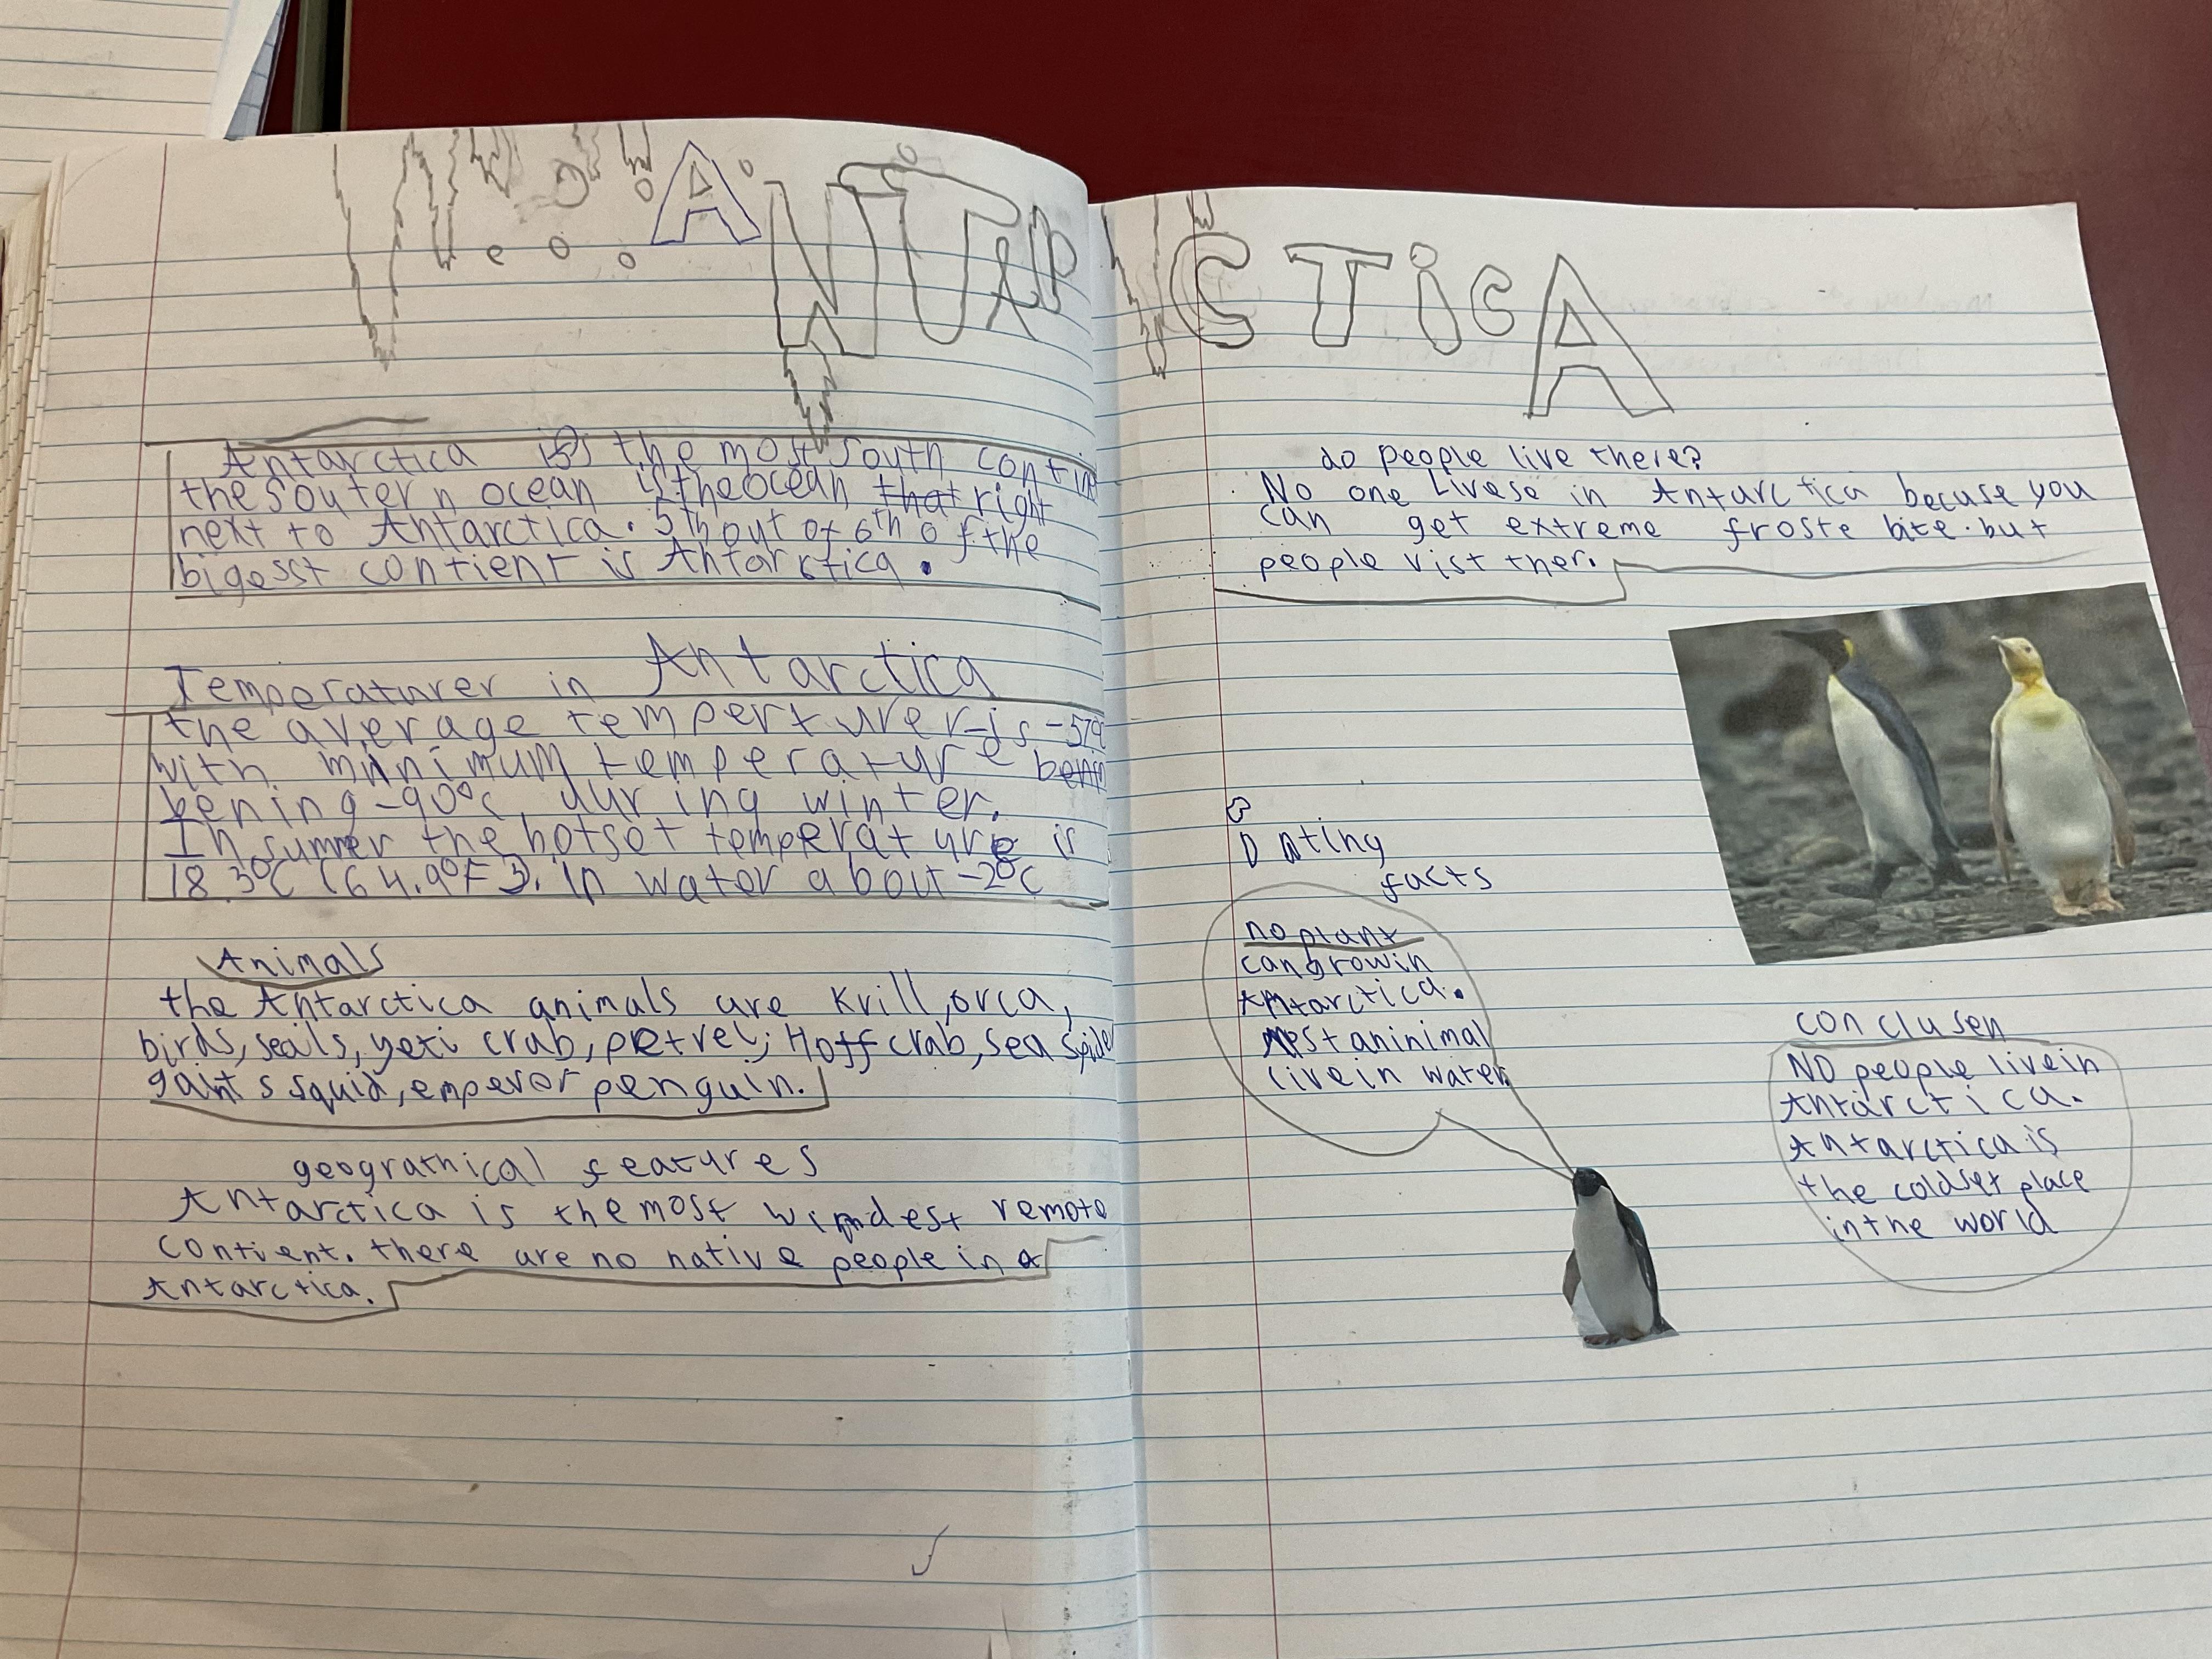 ANTARCTICA
Antarctica is the most south contin
the soutern ocean is the ocean that right
next to Antarctica. 5th out of 6th of the
bigesst contient is Antarctica.
Temperaturer in Antarctica
the average temperturer is -57°c
with minimum temperature
bening -90°c during winter.
In summer the hotset temperature is
18.3°C (64.9°F). in water about -2°c
Animals
the Antarctica animals are Krill, orca,
birds, seals, yeti crab, petrel, Hoff crab, sea spider
gaint s squid, emperor penguin.
geograthical features
Antarctica is the most windest remote
contient. there are no native people in a
Antarctica.
do people live there?
No one Livese in Antarctica becuse you
can get extreme froste bite. but
people vist ther.
facts
no plant
can grow in
Antarctica.
Mest aninimal
live in water
conclusen
NO people live in
Antarctica.
Antarctica is
the coldset place
in the world